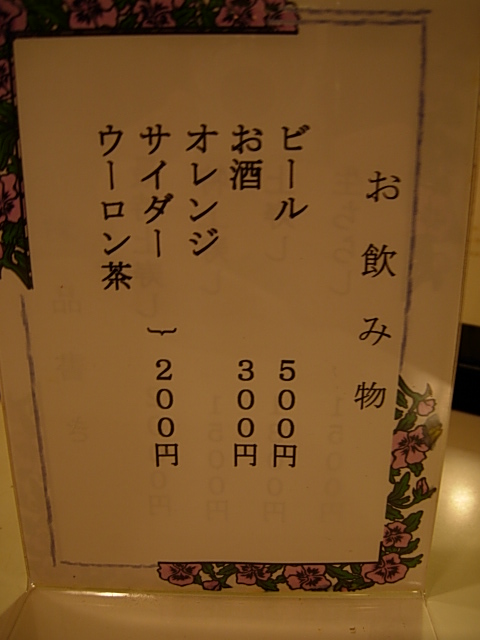 お飲み物
ビール 500円
お酒 300円
オレンジ
サイダー } 200円
ウーロン茶